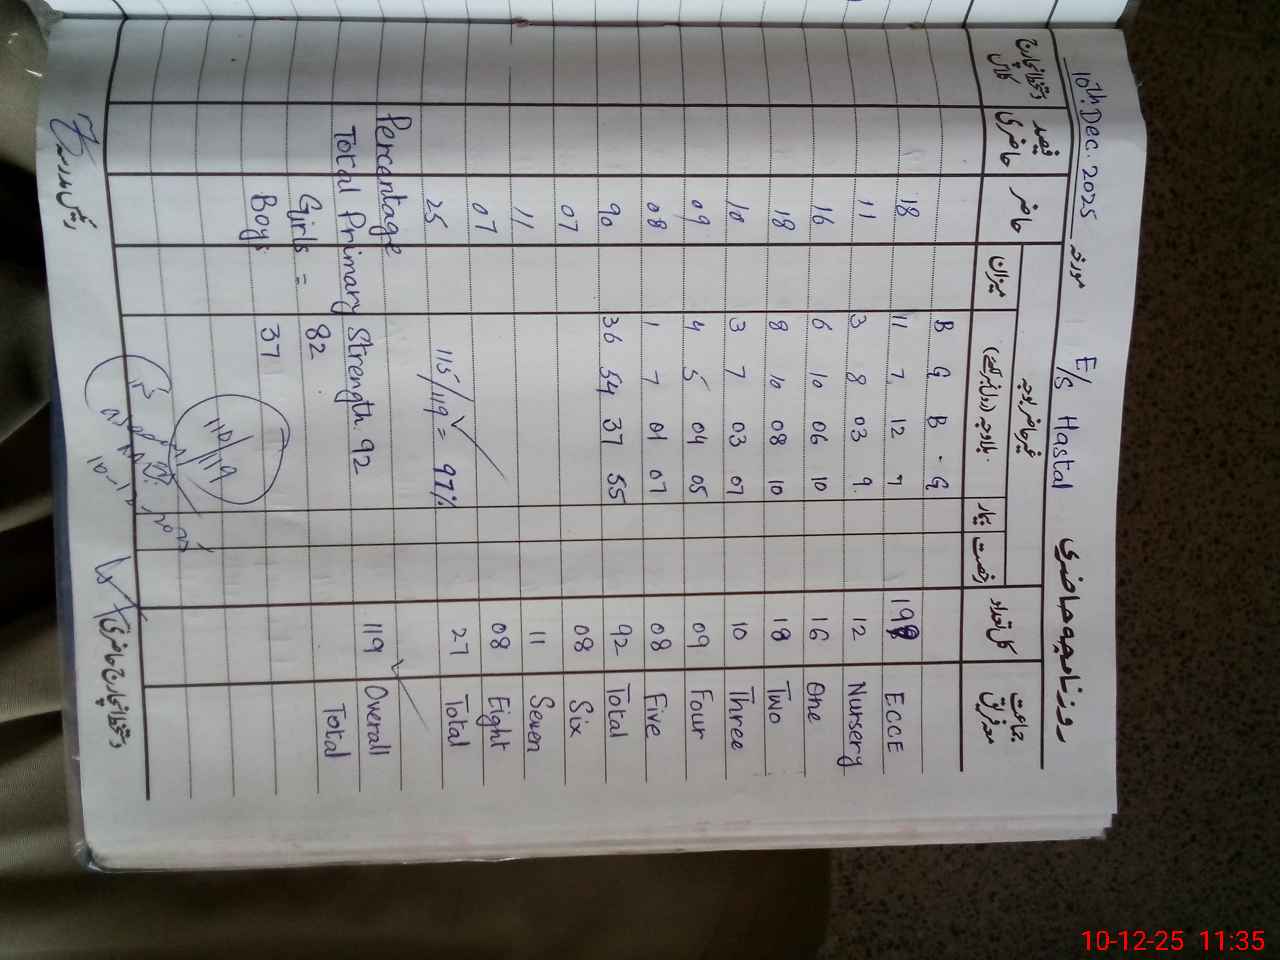 روزنامچہ حاضری E/S Hastal مورخہ 10th. Dec. 2025
جماعت معہ فریق کل تعداد غیر حاضر بلاوجہ میزان حاضر فیصد حاضری دستخط انچارج کلاس
رخصت بیمار
B G B - G
ECCE 19 7 12 7 11 18
Nursery 12 9 03 8 3 11
One 16 10 06 10 6 16
Two 18 10 08 10 8 18
Three 10 07 03 7 3 10
Four 09 05 04 5 4 09
Five 08 07 01 7 1 08
Total 92 55 37 54 36 90
Six 08 07
Seven 11 11
Eight 08 07
Total 27 25
115/119 = 97%
Percentage
Overall Total 119
Total Primary Strength 92
Girls = 82
Boys 37
110/119
دستخط انچارج حاضری
رئیس مدرسہ
10-12-25 11:35